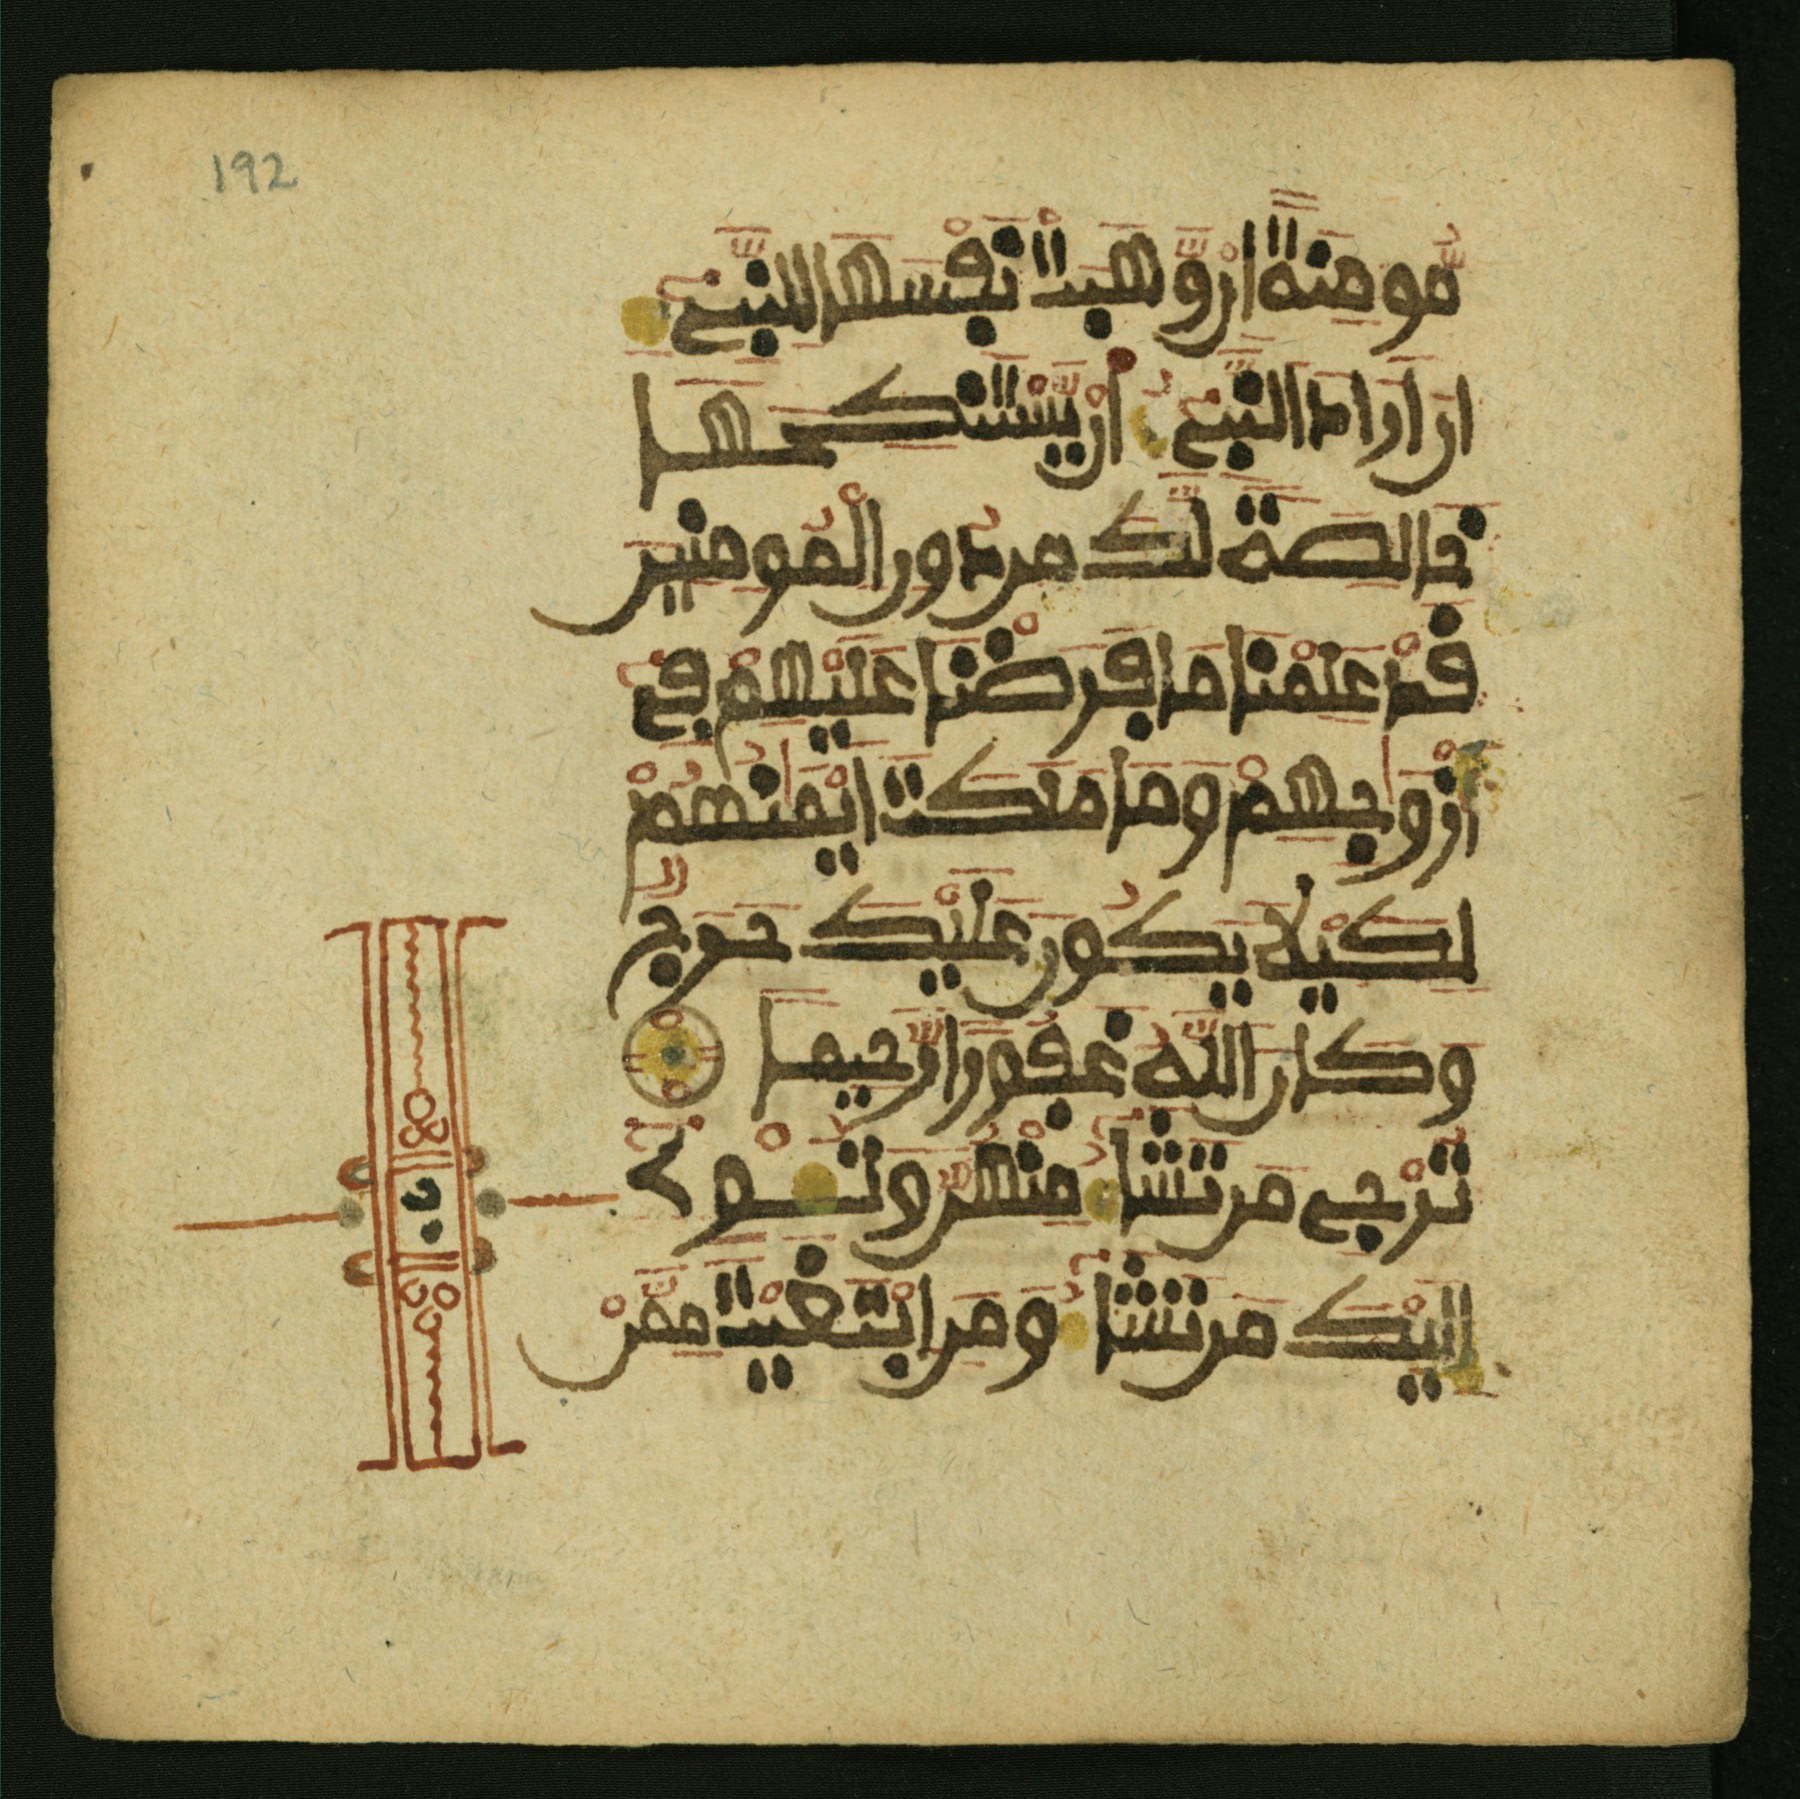 192
مُّومِنَةً ان وَّهَبَتْ نَفْسَهَا لِلنَّبِيءِ
ان اَرَادَ النَّبِيءُ أَنْ يَّسْتَنكِحَهَا
خَالِصَةً لَّكَ مِن دُونِ الْمُومِنِينَ
قَدْ عَلِمْنَا مَا فَرَضْنَا عَلَيْهِمْ فِي
أَزْوَٰجِهِمْ وَمَا مَلَكَتَ ايْمَٰنُهُمْ
لِكَيْلَا يَكُونَ عَلَيْكَ حَرَجٌ
وَكَانَ اللَّهُ غَفُورًا رَّحِيمًا
تُرْجِي مَن تَشَاءُ مِنْهُنَّ وَتُـْٔوِي
إِلَيْكَ مَن تَشَاءُ وَمَنِ ابْتَغَيْتَ مِمَّنْ